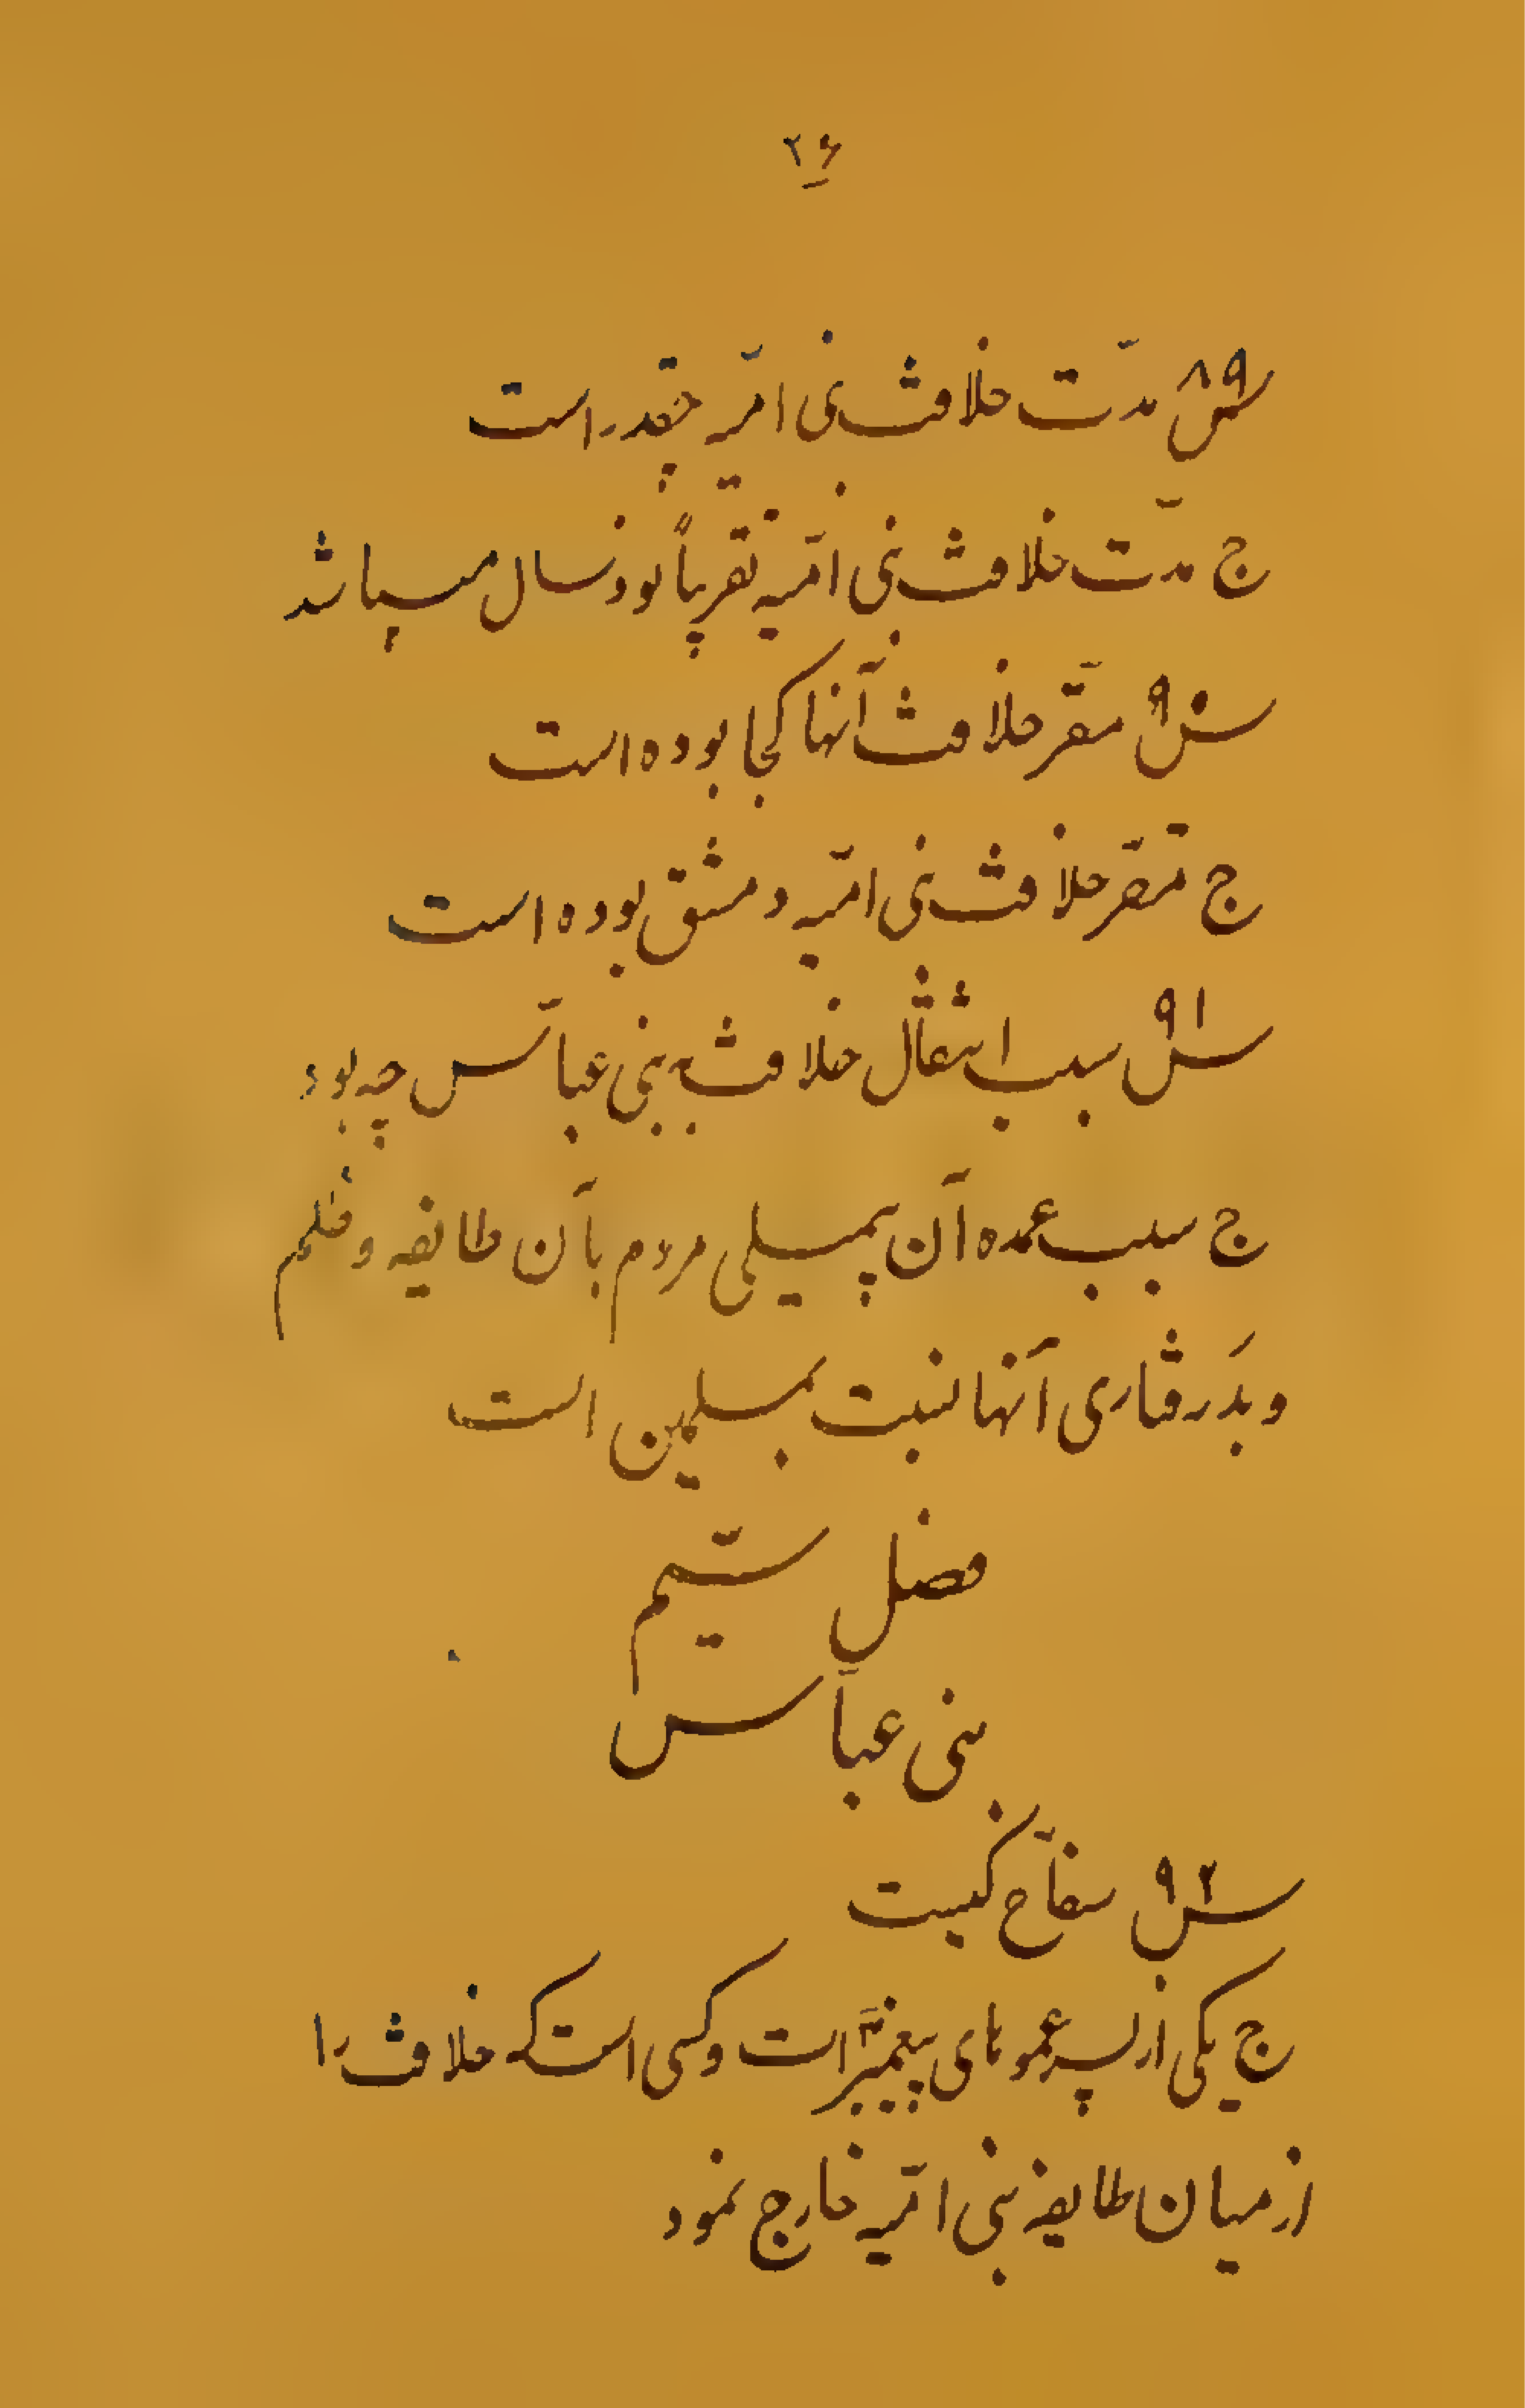 ۲۶
س۸۹ مدّت خلافت بنی امیّه چقدر است
ج مدّت خلافت بنی امیّه تقریباً نود سال میباشد
س۹۰ مقّر خلافت آنها کجا بوده است
ج مقّر خلافت بنی امیّه دمشق بوده است
س۹۱ سبب انتقال خلافت به بنی عبّاس چه بود
ج سبب عمده آن بیمیلی مردم بآن طایفه و ظلم
و بَدرفتاری آنها نسبت بمسلمین است
فصل ششم
بنی عبّاس
س۹۲ سفّاح کیست
ج یکی از پسر عموهای پیغمبر است و کسی است که خلافت را
از میان طایفه بنی امیّه خارج نمود